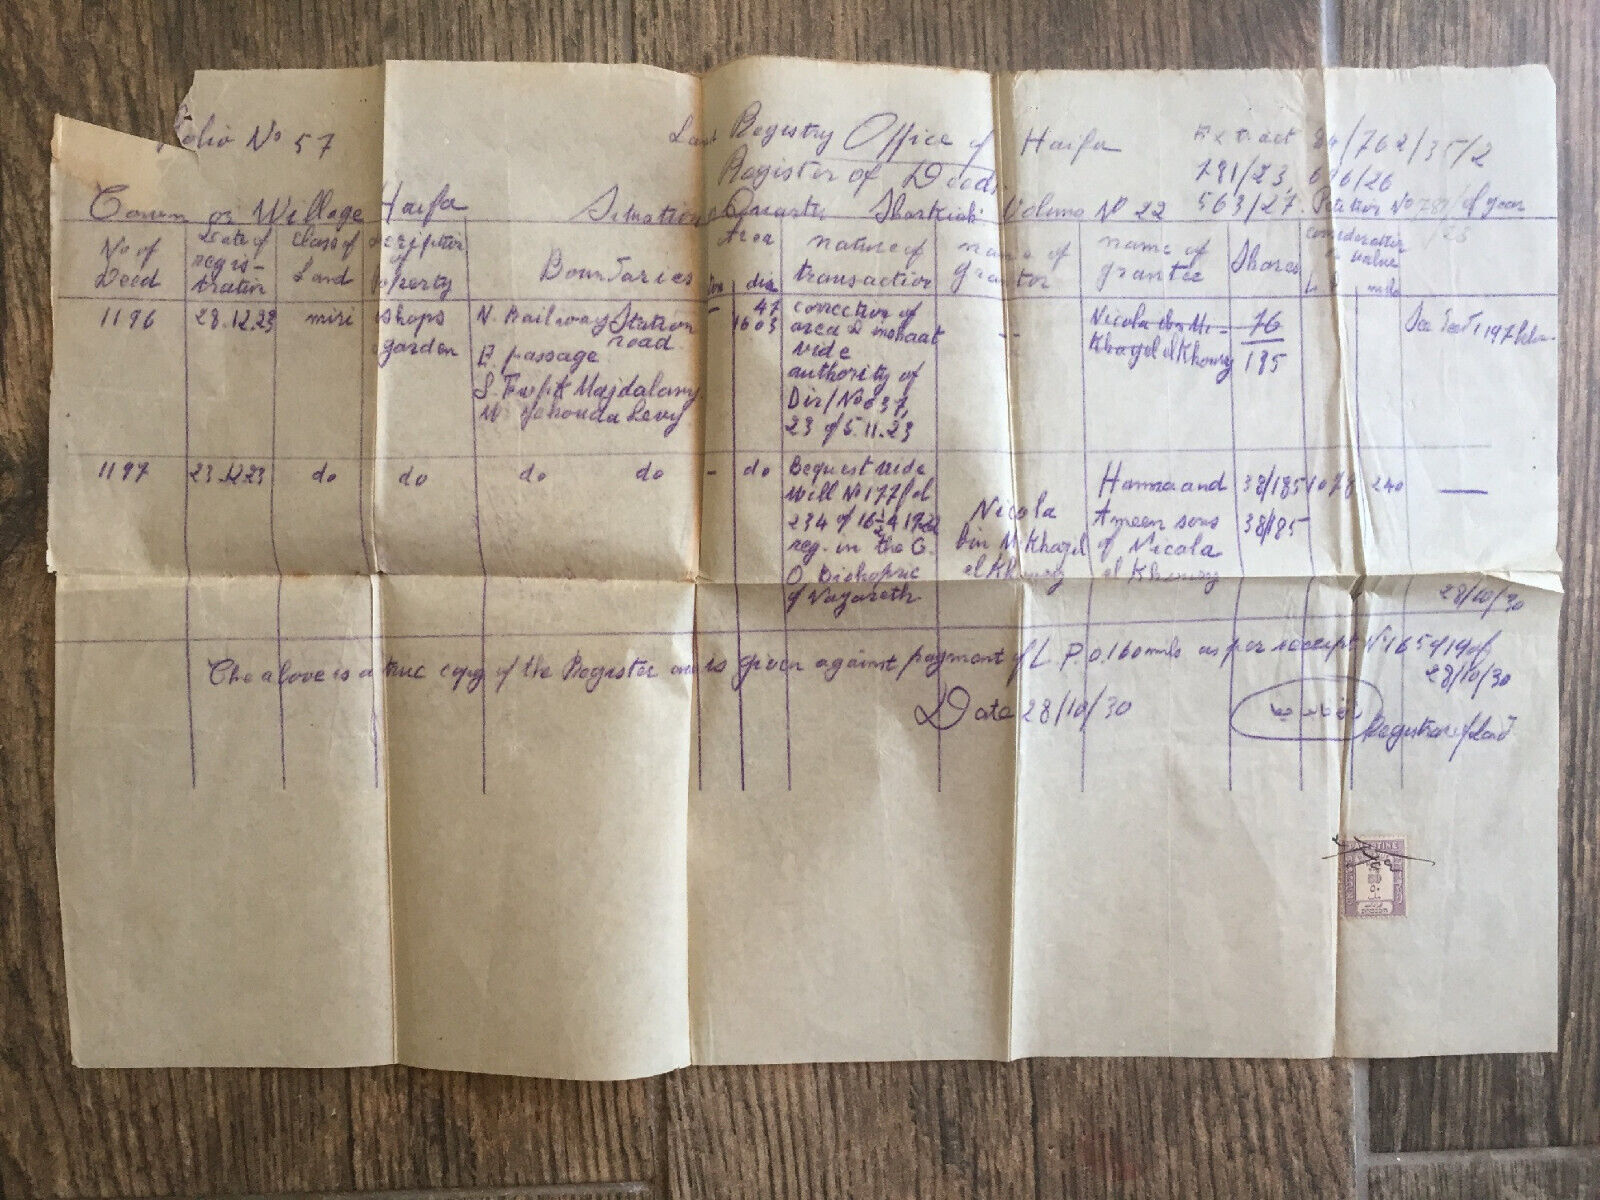 Folio No 57
Land Registry Office of Haifa
Extract 84/762/35/2
Register of Deeds
781/23, 616/26
Town or Village Haifa Situation Quarter Sharkieh Volume No 22 563/27 Petition No 781 of year
/23
No of Deed
Date of regis-tration
Class of Land
Description of property
Boundaries
Area
Don dia
nature of transaction
name of grantor
name of grantee
Shares
consideration or value
L P mils
1196
28.12.23
miri
shops
garden
N. Railway Station road
E. passage
S. Majdalany
W. Yehouda Levy
- 47
1603
correction of
area & inshaat
vide
authority of
Dir/No 637,
23 of 5.11.23
--
Nicola ibn Mi-
Khayel el Khoury
76
185
See Deed 1197 below
1197
23.12.23
do
do
do do
- do
Bequest vide
Will No 177 fol
234 of 1922
reg. in the G.
O Bishopric
of Nazareth
Nicola
bin Mikhayel
el Khoury
Hanna and
Ameen sons
of Nicola
el Khoury
38/185
38/185
1078 240
—
28/10/30
The above is a true copy of the Register and is given against payment of L.P. 0.160 mils as per receipt No 165919 of
28/10/30
Date 28/10/30
Registrar of Land
PALESTINE
٥٠